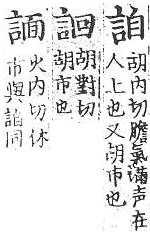 詯
胡内切膽氣滿声在
人上也又胡市也
䛛
胡對切
胡市也
火内切休
市與詯同